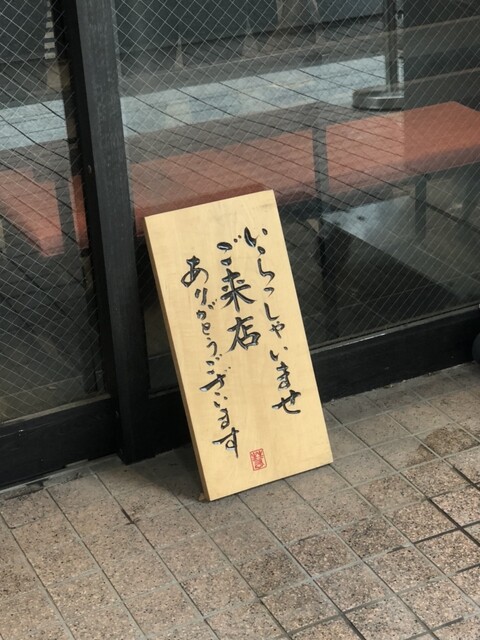 いらっしゃいませ
ご来店
ありがとうございます